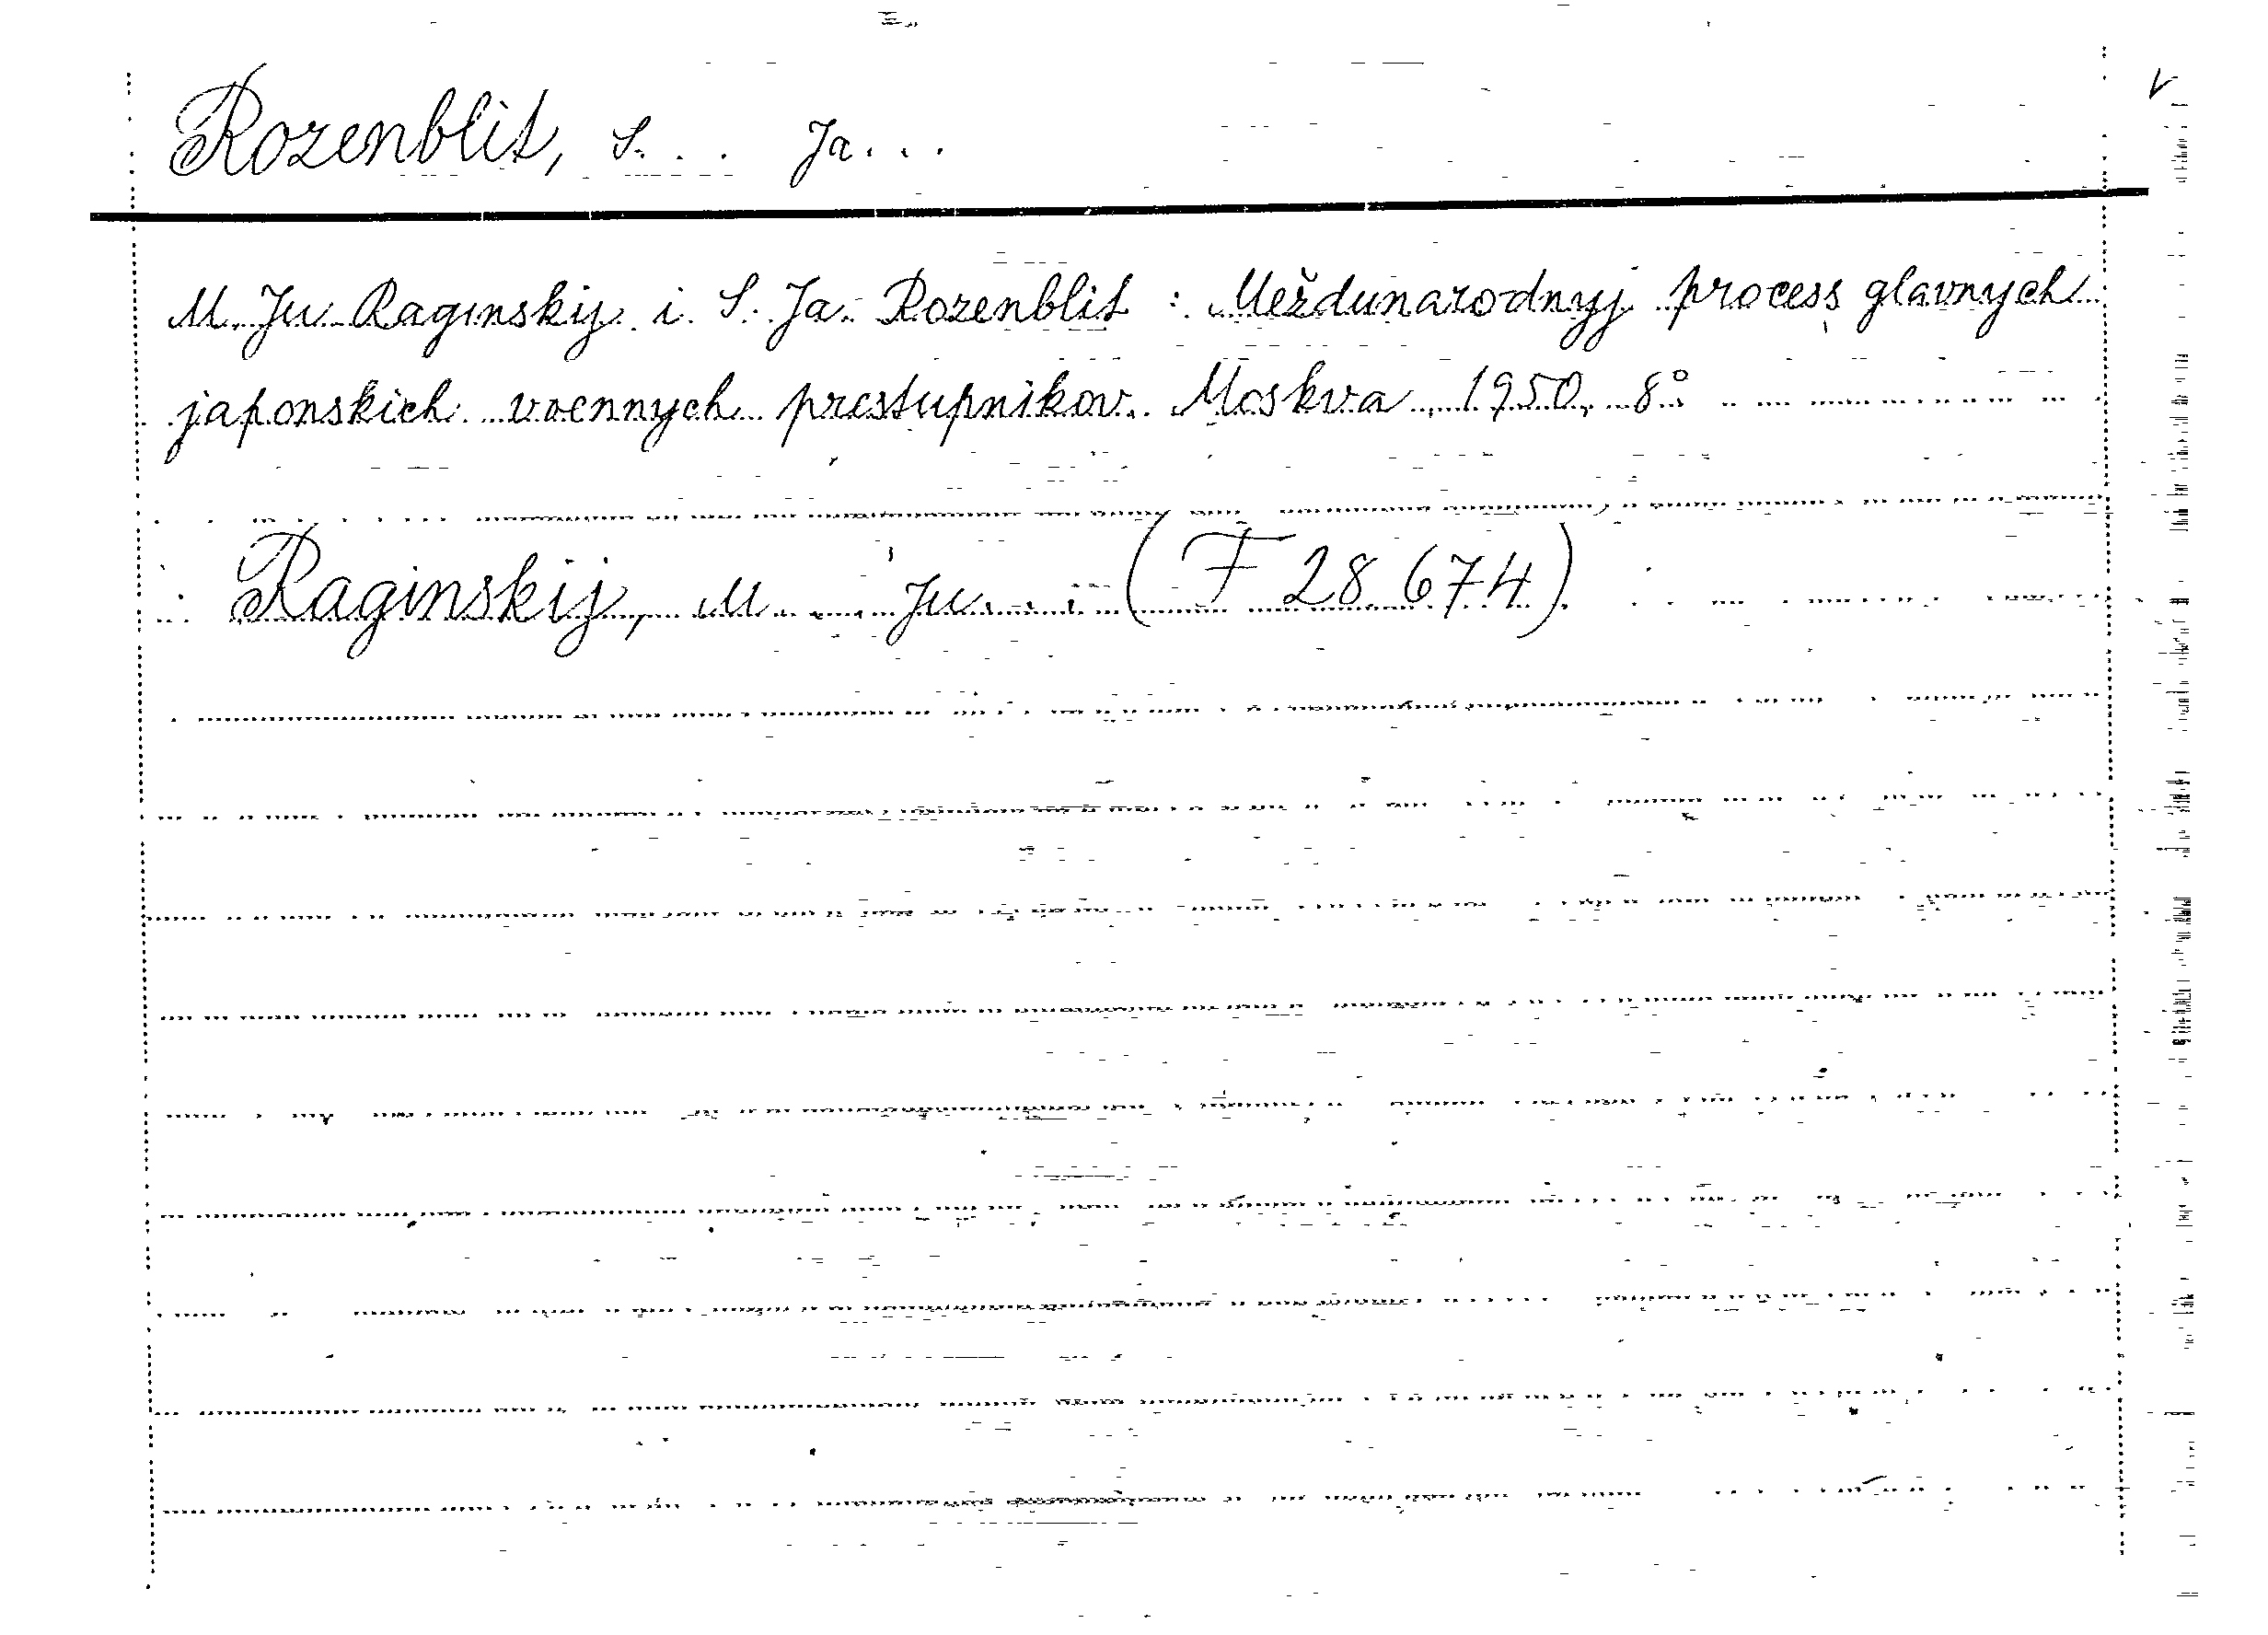 Rozenblit, S... Ja...
M. Ju. Raginskij i S. Ja. Rozenblit : Meždunarodnyj process glavnych
japonskich voennych prestupnikov. Moskva, 1950, 8°
Raginskij, M... Ju... (F 28 674)